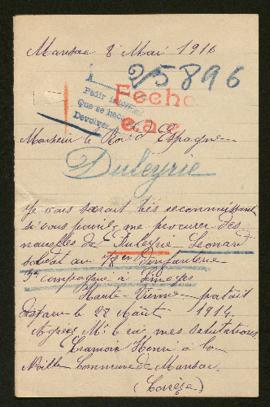 Mansac 8 Mai 1916
25896
Fecho
Pedir
Que se
Monsieur le Roi d'Espagne
Duleyrie
Je vous serait très reconnaissant
si vous pouviez me procurer des
nouvelles de Duleyrie Leonard
soldat au d'infanterie
compagnie à Limoges
Haute Vienne partait
disparu le 28 Août 1914.
Agréez Mr le roi mes salutations
Henri à la
commune de Mansac
(Corrèze)